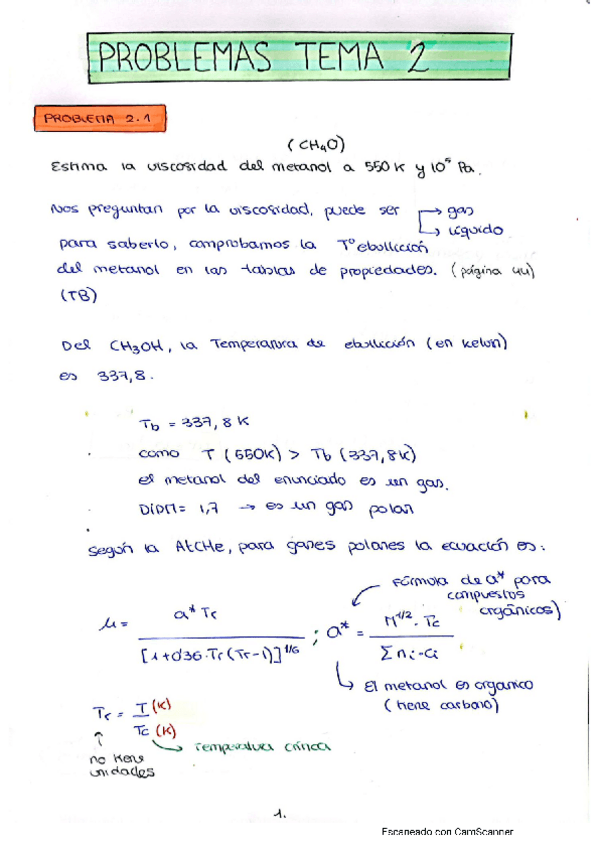 PROBLEMAS TEMA 2
PROBLEMA 2.1
(CH4O)
Estima la viscosidad del metanol a 550 K y 10⁵ Pa.
Nos preguntan por la viscosidad, puede ser → gas
→ líquido
para saberlo, comprobamos la Tº ebullición
del metanol en las tablas de propiedades. (página 44)
(TB)
Del CH3OH, la Temperatura de ebullición (en kelvin)
es 337,8.
Tb = 337,8 K
como T (550K) > Tb (337,8K)
el metanol del enunciado es un gas.
DIPM = 1,7 → es un gas polar
Según la AECHE, para gases polares la ecuación es:
Fórmula de a* para
compuestos
orgánicos)
μ = a* Tr / [1+0'36·Tr(Tr-1)]^1/6 ; a* = M^1/2 · Tc / Σ ni·Ci
El metanol es orgánico
(tiene carbono)
Tr = T (K) / Tc (K)
Temperatura crítica
no tiene
unidades
1.
Escaneado con CamScanner